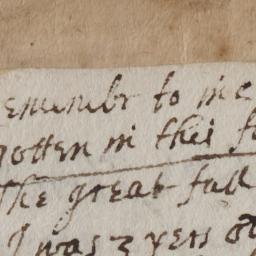 emembr to me
gotten in this f
The great fall
I was 3 yers o